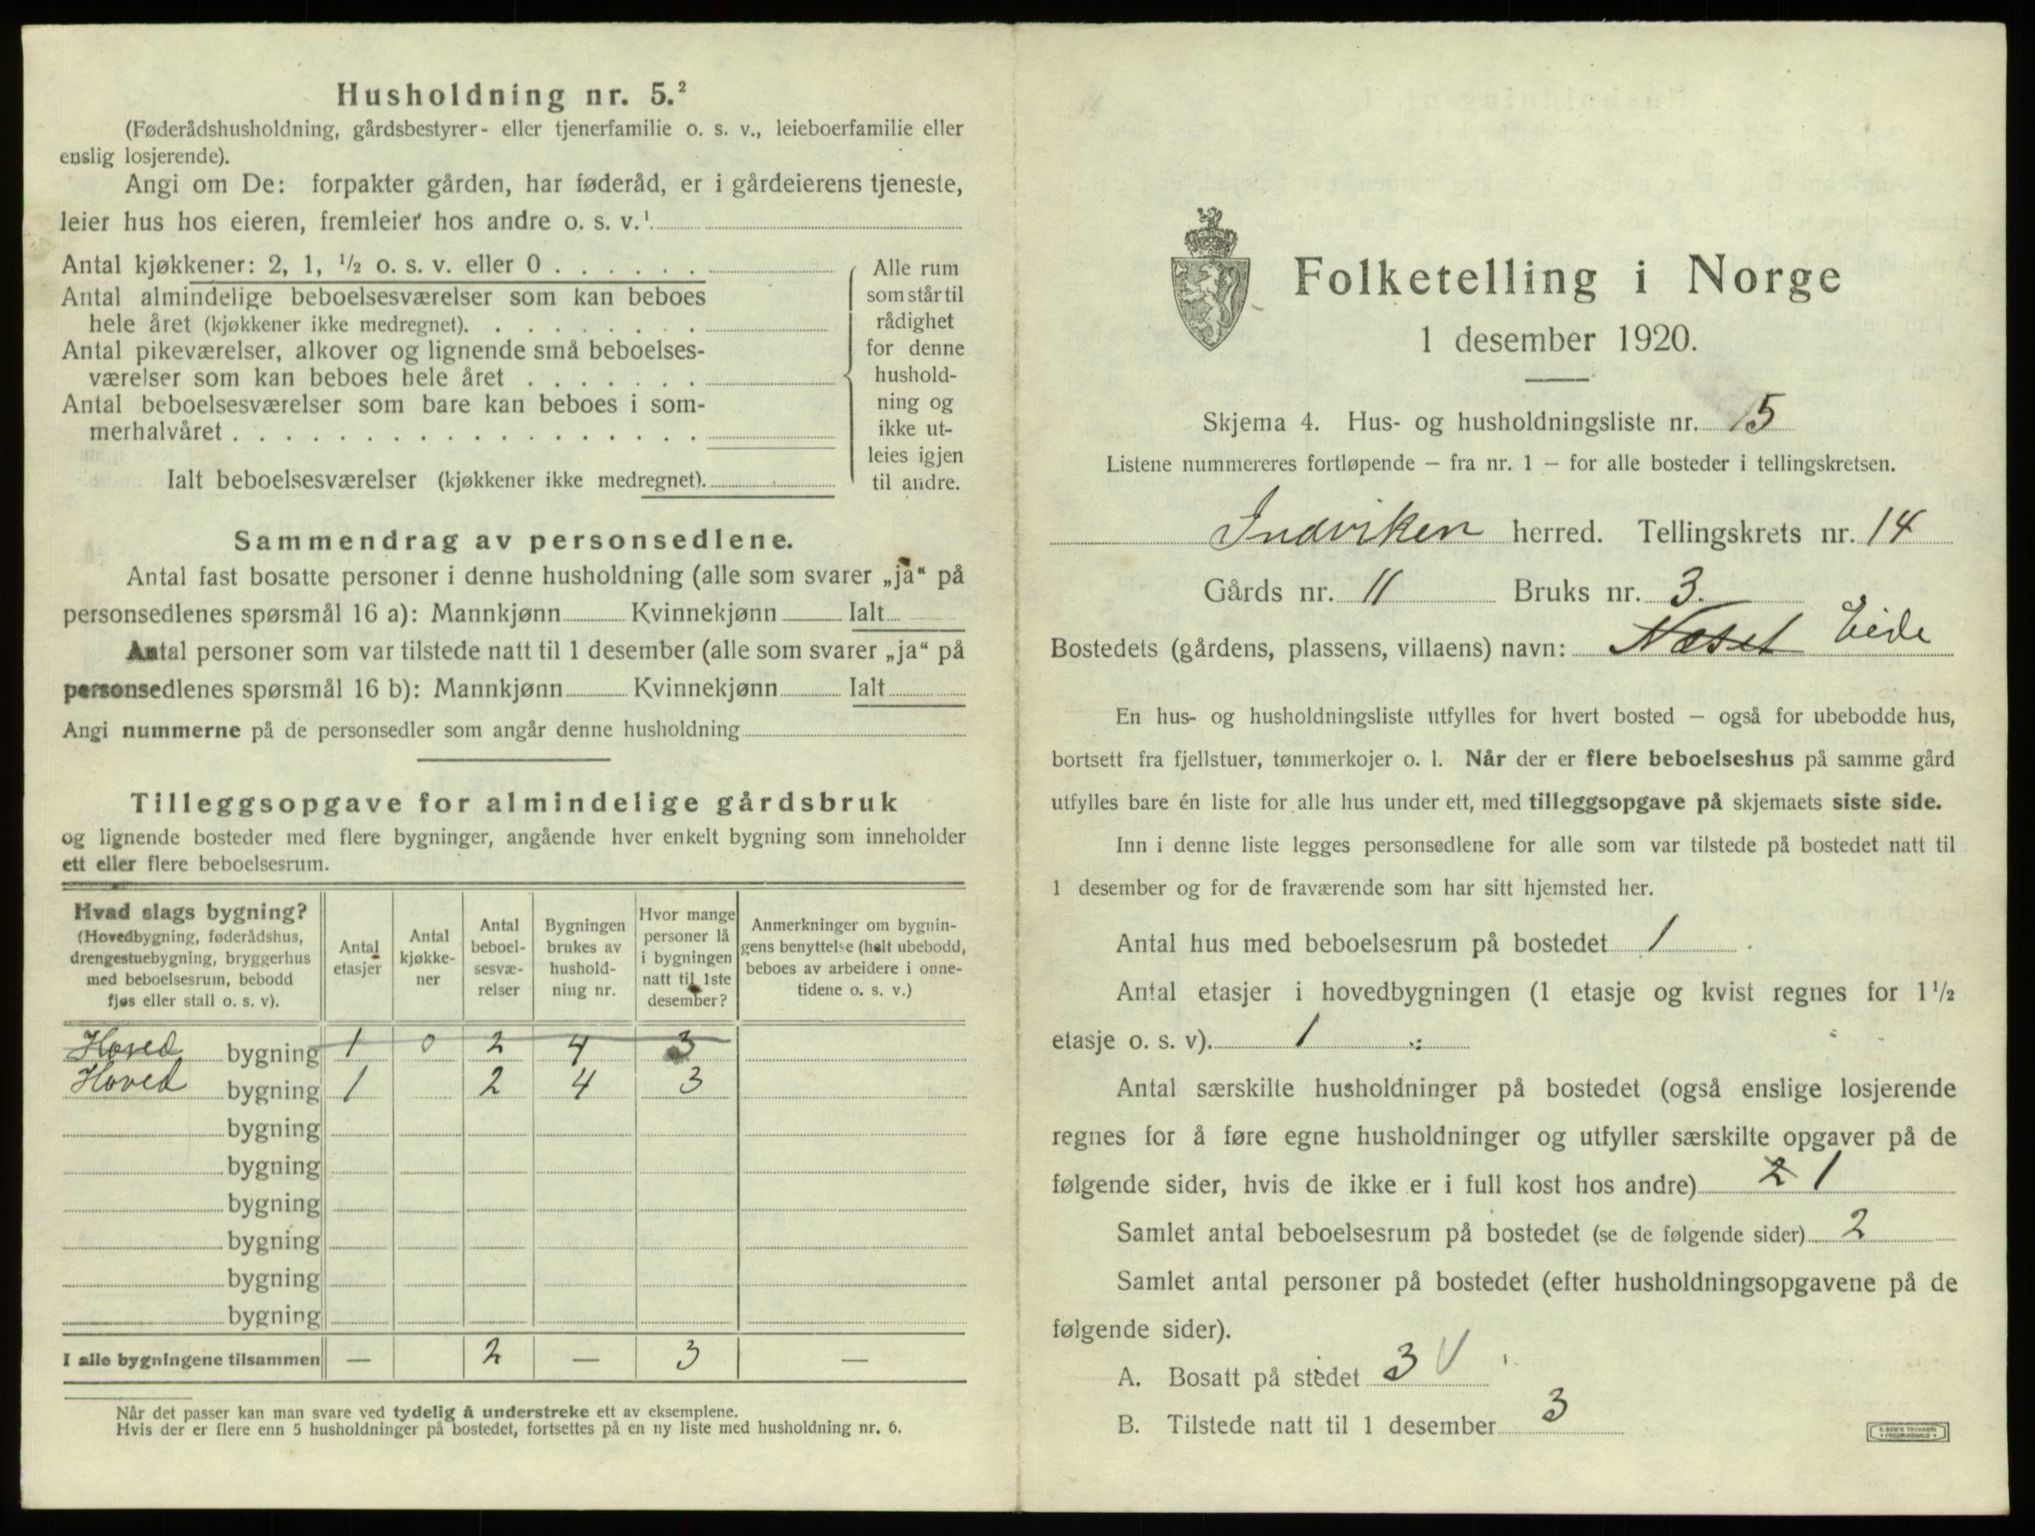 Husholdning nr. 5.²
(Føderådshusholdning, gårdsbestyrer- eller tjenerfamilie o. s. v., leieboerfamilie eller
enslig losjerende).
Angi om De: forpakter gården, har føderåd, er i gårdeierens tjeneste,
leier hus hos eieren, fremleier hos andre o. s. v.¹
Antal kjøkkener: 2, 1, ½ o. s. v. eller 0 . . . . . .
Antal almindelige beboelsesværelser som kan beboes
hele året (kjøkkener ikke medregnet). . . . . . . . .
Antal pikeværelser, alkover og lignende små beboelses-
værelser som kan beboes hele året . . . . . . .
Antal beboelsesværelser som bare kan beboes i som-
merhalvåret . . . . . . . . . . . . . . . . . .
Ialt beboelsesværelser (kjøkkener ikke medregnet).
Alle rum
som står til
rådighet
for denne
hushold-
ning og
ikke ut-
leies igjen
til andre.
Sammendrag av personsedlene.
Antal fast bosatte personer i denne husholdning (alle som svarer „ja“ på
personsedlenes spørsmål 16 a): Mannkjønn Kvinnekjønn Ialt
Antal personer som var tilstede natt til 1 desember (alle som svarer „ja“ på
personsedlenes spørsmål 16 b): Mannkjønn Kvinnekjønn Ialt
Angi nummerne på de personsedler som angår denne husholdning
Tilleggsopgave for almindelige gårdsbruk
og lignende bosteder med flere bygninger, angående hver enkelt bygning som inneholder
ett eller flere beboelsesrum.
Hvad slags bygning?
(Hovedbygning, føderådshus,
drengestuebygning, bryggerhus
med beboelsesrum, bebodd
fjøs eller stall o. s. v).
Antal
etasjer
Antal
kjøkke-
ner
Antal
beboel-
sesvæ-
relser
Bygningen
brukes av
hushold-
ning nr.
Hvor mange
personer lå
i bygningen
natt til 1ste
desember?
Anmerkninger om bygnin-
gens benyttelse (helt ubebodd,
beboes av arbeidere i onne-
tidene o. s. v.)
Hoved bygning 1 0 2 4 3
Hoved bygning 1 2 4 3
bygning
bygning
bygning
bygning
bygning
bygning
I alle bygningene tilsammen — 2 — 3 —
Når det passer kan man svare ved tydelig å understreke ett av eksemplene.
Hvis der er flere enn 5 husholdninger på bostedet, fortsettes på en ny liste med husholdning nr. 6.
Folketelling i Norge
1 desember 1920.
Skjema 4. Hus- og husholdningsliste nr. 15
Listene nummereres fortløpende – fra nr. 1 – for alle bosteder i tellingskretsen.
Indviken herred. Tellingskrets nr. 14
Gårds nr. 11 Bruks nr. 3.
Bostedets (gårdens, plassens, villaens) navn: Næset Eide
En hus- og husholdningsliste utfylles for hvert bosted – også for ubebodde hus,
bortsett fra fjellstuer, tømmerkojer o. l. Når der er flere beboelseshus på samme gård
utfylles bare én liste for alle hus under ett, med tilleggsopgave på skjemaets siste side.
Inn i denne liste legges personsedlene for alle som var tilstede på bostedet natt til
1 desember og for de fraværende som har sitt hjemsted her.
Antal hus med beboelsesrum på bostedet 1
Antal etasjer i hovedbygningen (1 etasje og kvist regnes for 1½
etasje o. s. v). 1
Antal særskilte husholdninger på bostedet (også enslige losjerende
regnes for å føre egne husholdninger og utfyller særskilte opgaver på de
følgende sider, hvis de ikke er i full kost hos andre) 2 1
Samlet antal beboelsesrum på bostedet (se de følgende sider) 2
Samlet antal personer på bostedet (efter husholdningsopgavene på de
følgende sider).
A. Bosatt på stedet 3
B. Tilstede natt til 1 desember 3